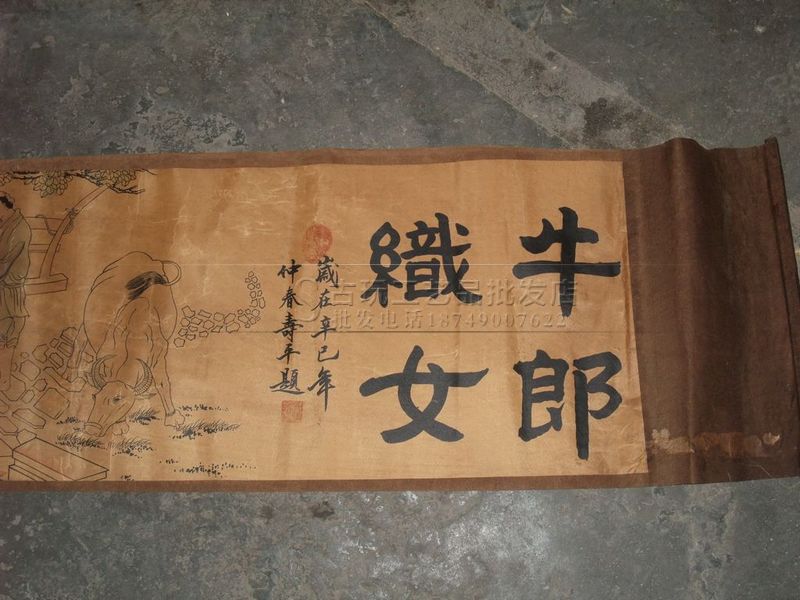 牛郎
織女
歲在辛巳年
仲春壽平題
批发电话18749007622